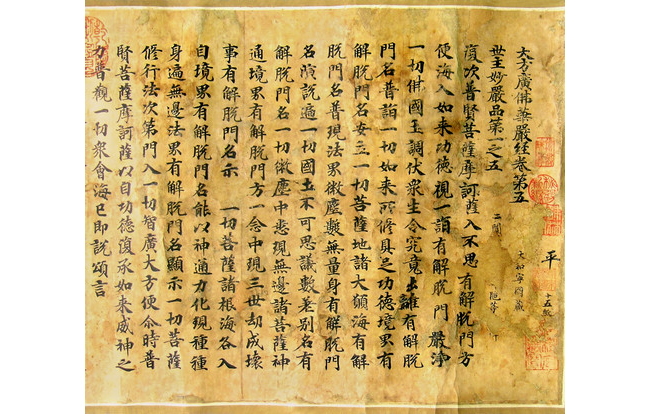 平
十五紙
大和寧國藏
大方廣佛華嚴經卷第五
世主妙嚴品第一之五
二閲
復次普賢菩薩摩訶薩入不思有解脫門方
便海入如来功德視一誦有解脫門 嚴淨
一切佛國土調伏衆生令究竟出離有解脫
門名普詣一切如来所修具足功德境界有
解脫門名安立一切菩薩地諸大願海有解
脫門名普現法界微塵數無量身有解脫門
名演說遍一切國土不可思議數差別名有
解脫門名一切微塵中悉現無邊諸菩薩神
通境界有解脫門方一念中現三世劫成壞
事有解脫門名示 一切菩薩諸根海各入
自境界有解脫門名能以神通力化現種種
身遍無邊法界有解脫門名顯示一切菩薩
修行法次第門入一切智廣大方便尒時普
賢菩薩摩訶薩以自功德復承如来威神之
力普觀一切衆會海已即說頌言